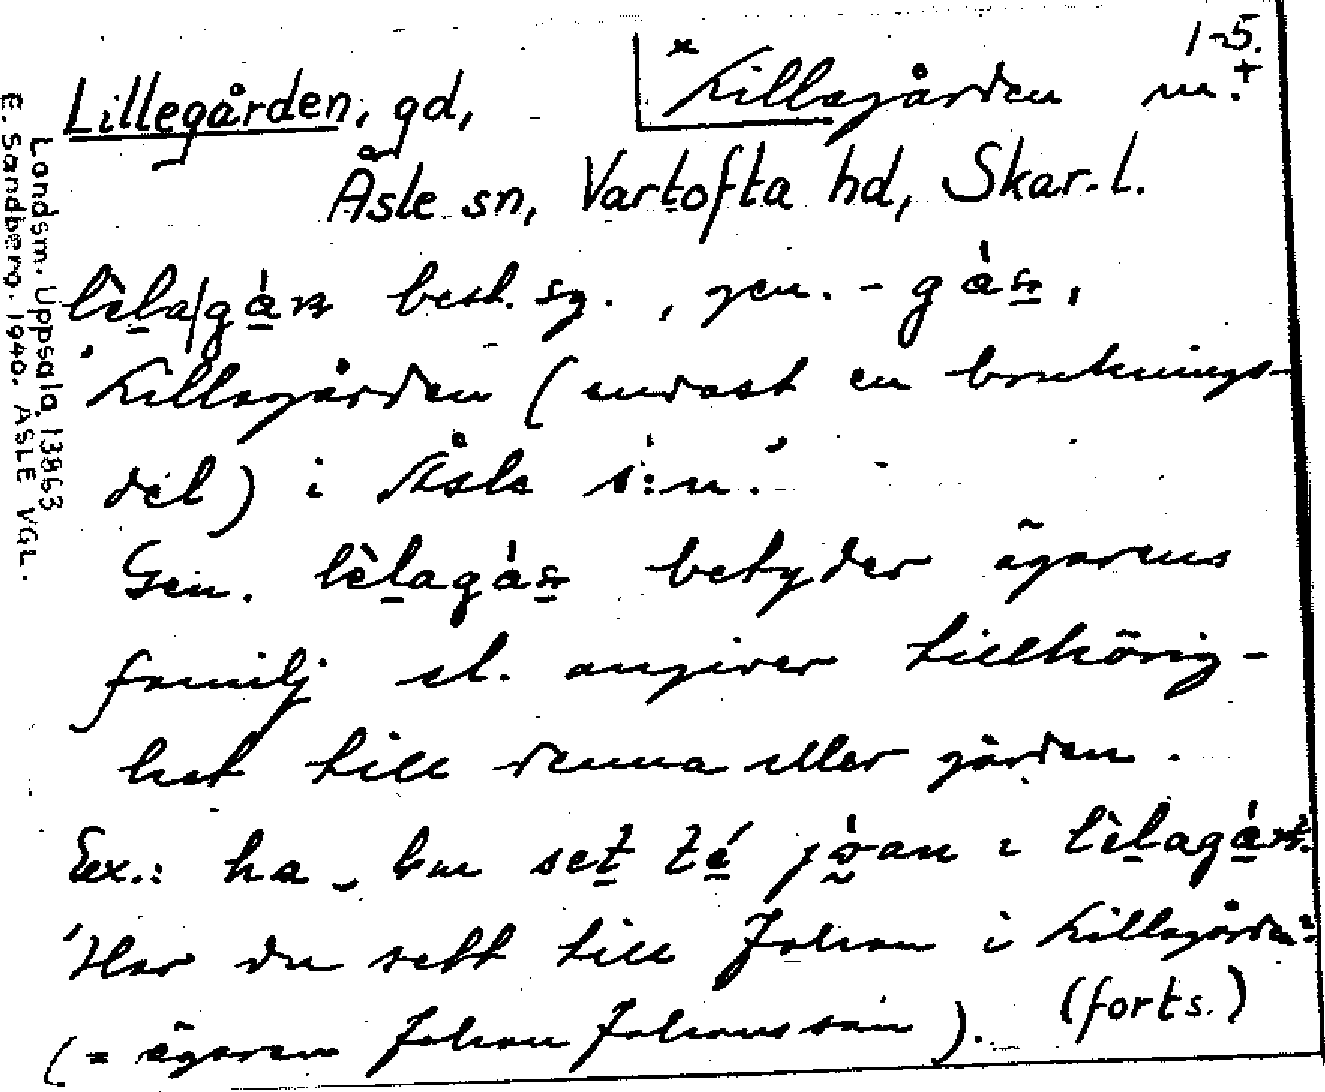 1-5.
Lillegården, gd, × Lillagården m.+
Åsle sn, Vartofta hd, Skar. l.
lèla/gán best. sg., gen. - gás,
'Lillagården (endast en bruknings-
del) i Åsle s:n.'
Gen. lèlagás betyder ägarens
familj el. angiver tillhörig-
het till denna eller gården.
Ex.: ha du set té jóan i lèlagán.
'Har du sett till Johan i Lillagården?'
(= ägaren Johan Johansson). (forts.)
Landsm. Uppsala 13863
E. Sandberg. 1940. ÅSLE VGL.